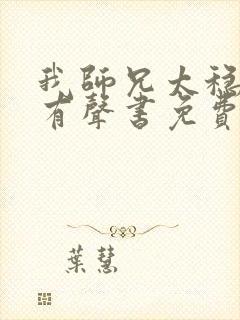 我師兄太穩
有聲書免費
葉慧